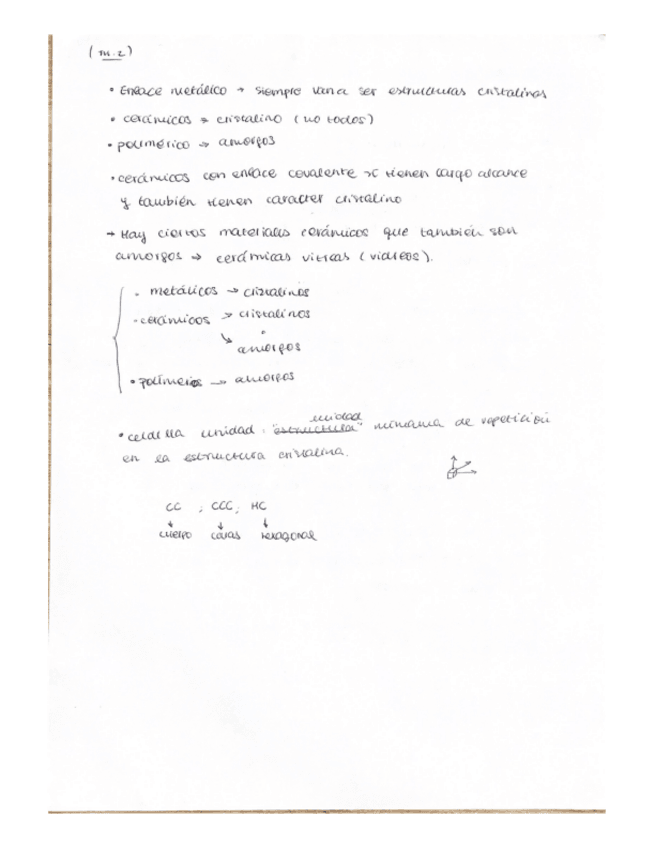 (TM.2)
• Enlace metálico → siempre van a ser estructuras cristalinas
• cerámicos → cristalino (no todos)
• polimérico → amorfos
• cerámicos con enlace covalente → tienen largo alcance
y también tienen caracter cristalino
→ Hay ciertos materiales cerámicos que también son
amorfos → cerámicas vitreas (vidrios).
• metálicos → cristalinos
• cerámicos → cristalinos
↘ amorfos
• polímeros → amorfos
unidad
• celdilla unidad: "estructura" mínima de repetición
en la estructura cristalina.
CC ; CCC ; HC
↓ ↓ ↓
cuerpo caras hexagonal